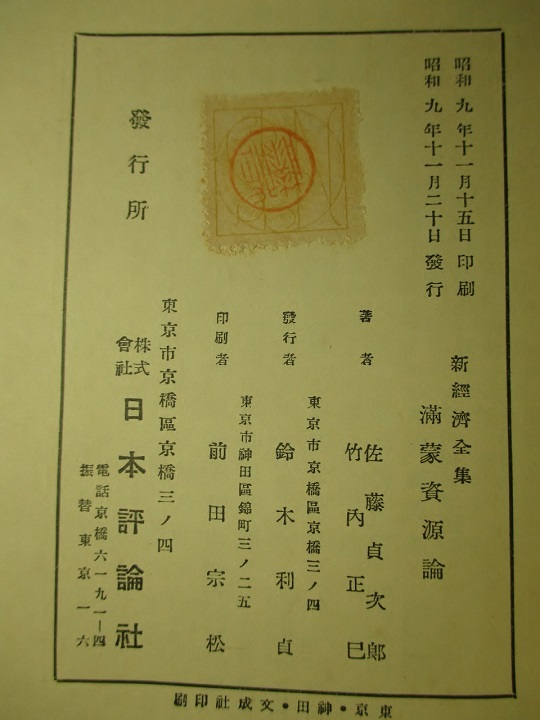 昭和九年十一月十五日印刷
昭和九年十一月二十日發行
新經濟全集
滿蒙資源論
著者
佐藤貞次郎
竹內正巳
東京市京橋區京橋三ノ四
發行者
鈴木利貞
東京市神田區錦町三ノ二五
印刷者
前田宗松
發行所
東京市京橋區京橋三ノ四
株式會社
日本評論社
電話京橋六一九一—四
振替東京一六
東京・神田・文成社印刷